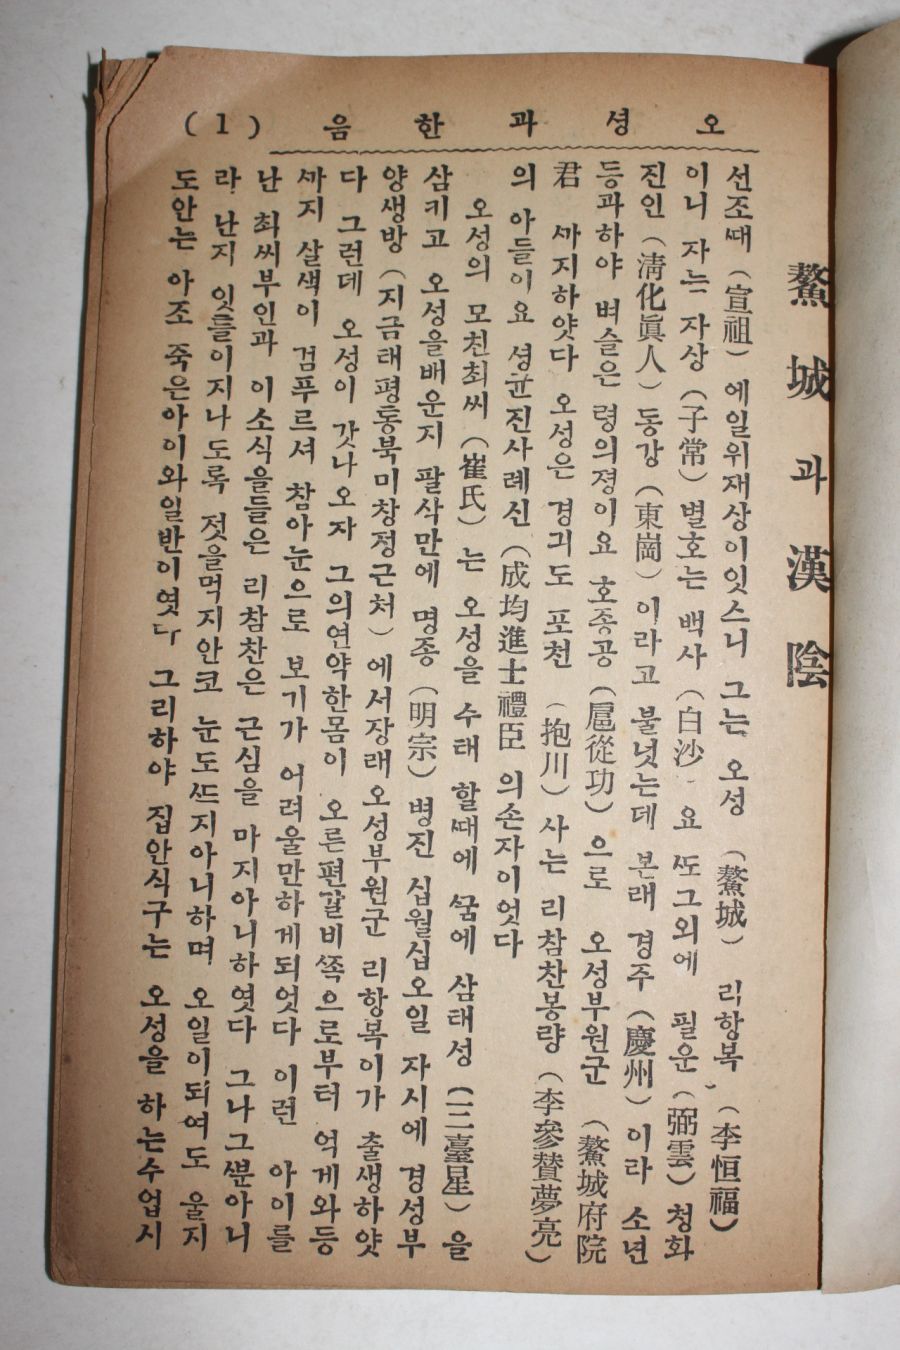 오 셩 과 한 음 (1)
鰲城과漢陰
선조ᄯᅢ (宣祖) 에일위재상이잇스니 그는 오성 (鰲城) 리항복 (李恒福)
이니 자는 자상 (子常) 별호는 백사 (白沙 요 ᄯᅩ그외에 필운 (弼雲) 청화
진인 (淸化眞人) 동강 (東崗) 이라고 불넛는데 본래 경주 (慶州) 이라 소년
등과하야 벼슬은 령의졍이요 호종공 (扈從功) 으로 오성부원군 (鰲城府院
君 ᄭᅡ지하얏다 오성은 경긔도 포천 (抱川) 사는 리참찬몽량 (李參贊夢亮)
의 아들이요 셩균진사례신 (成均進士禮臣 의손자이엇다
오성의 모친최씨 (崔氏) 는 오성을 수태 할ᄯᅢ에 ᄭᅮᆷ에 삼태성 (三臺星) 을
삼키고 오성을배운지 팔삭만에 명종 (明宗) 병진 십월십오일 자시에 경성부
양생방 (지금태평통북미창정근처) 에서장래 오성부원군 리항복이가 출생하얏
다 그런데 오성이 갓나오자 그의연약한몸이 오른편갈비ᄶᅩᆨ으로부터 억게와등
ᄭᅡ지 살색이 검푸르셔 참아눈으로 보기가 어려울만하게되엇다 이런 아이를
난 최씨부인과 이소식을들은 리참찬은 근심을 마지아니하엿다 그나그ᄲᅮᆫ아니
라 난지 잇틀이지나도록 젓을먹지안코 눈도ᄯᅳ지아니하며 오일이되여도 울지
도안는 아조 죽은아이와일반이엿다 그리하야 집안식구는 오성을 하는수업시